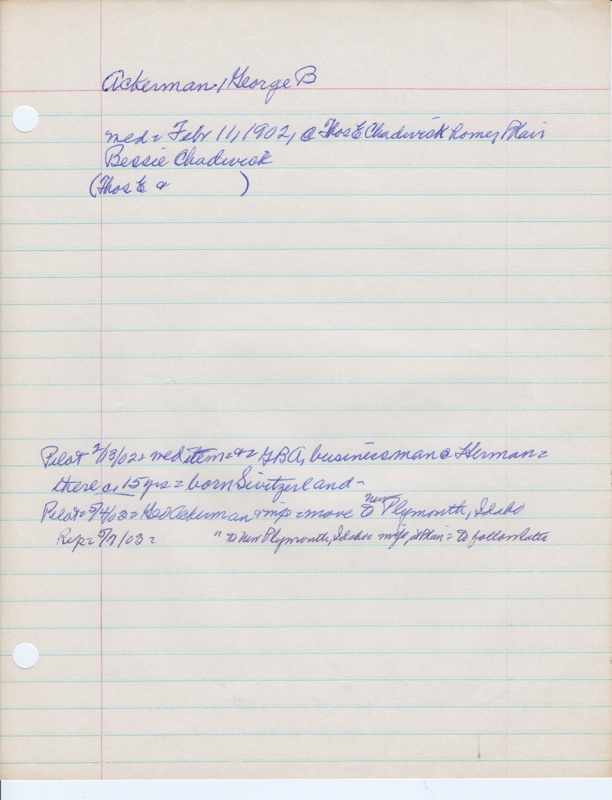 Ackerman, George B
med = Febr 11, 1902, @ Thos E Chadwick home, Blair
Bessie Chadwick
(Thos E &          )
Pilot 2/13/02 = med item = GBA, businessman @ Herman =
there c. 15 yrs = born Switzerland -
Pilot = 5/4/03 = Geo Ackerman & = move to new Plymouth, Idaho
Rep = 5/7/03 = " to new Plymouth, Idaho = wife, Blair = to follow later